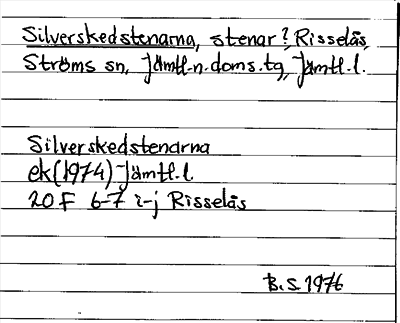 Silverskedstenarna, stenar?, Risselås,
Ströms sn, Jämtl.n.doms.tg, Jämtl.l.
Silverskedstenarna
ek(1974) Jämtl.l
20 F 6-7 i-j Risselås
B.S. 1976